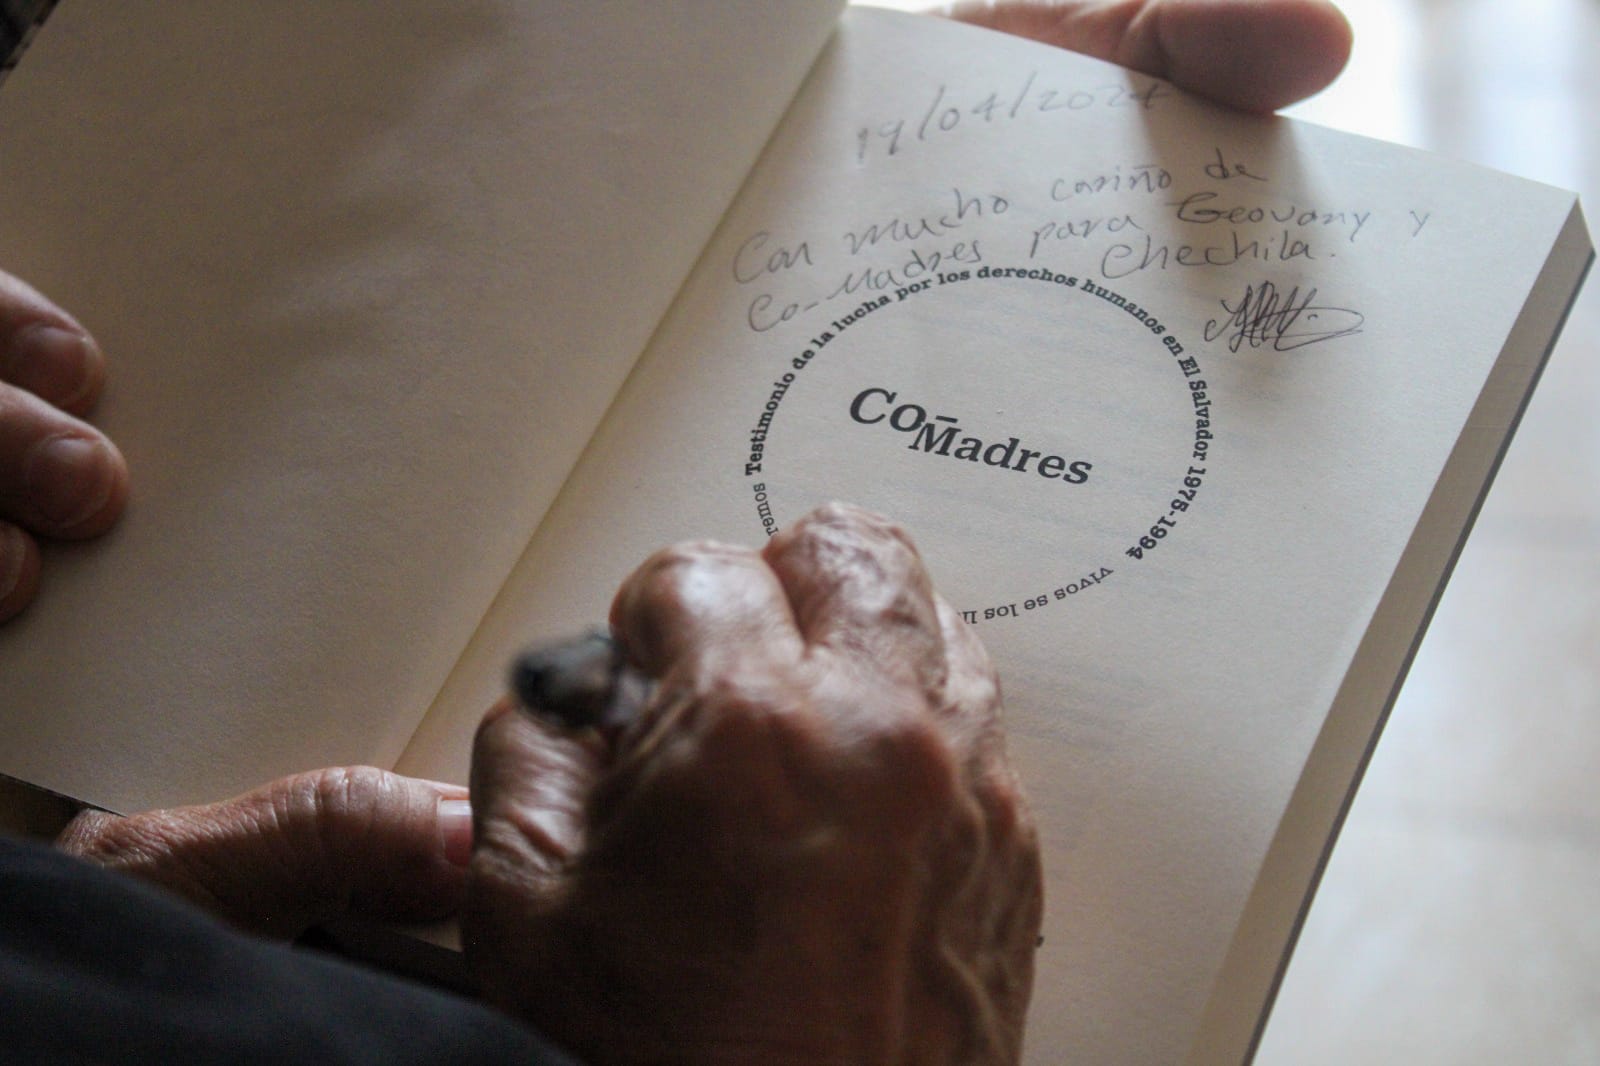 19/04/2024
Con mucho cariño de
Co-Madres para Geovany y
Chechila.
Testimonio de la lucha por los derechos humanos en El Salvador 1975-1994
vivos se los
remos
Co-Madres